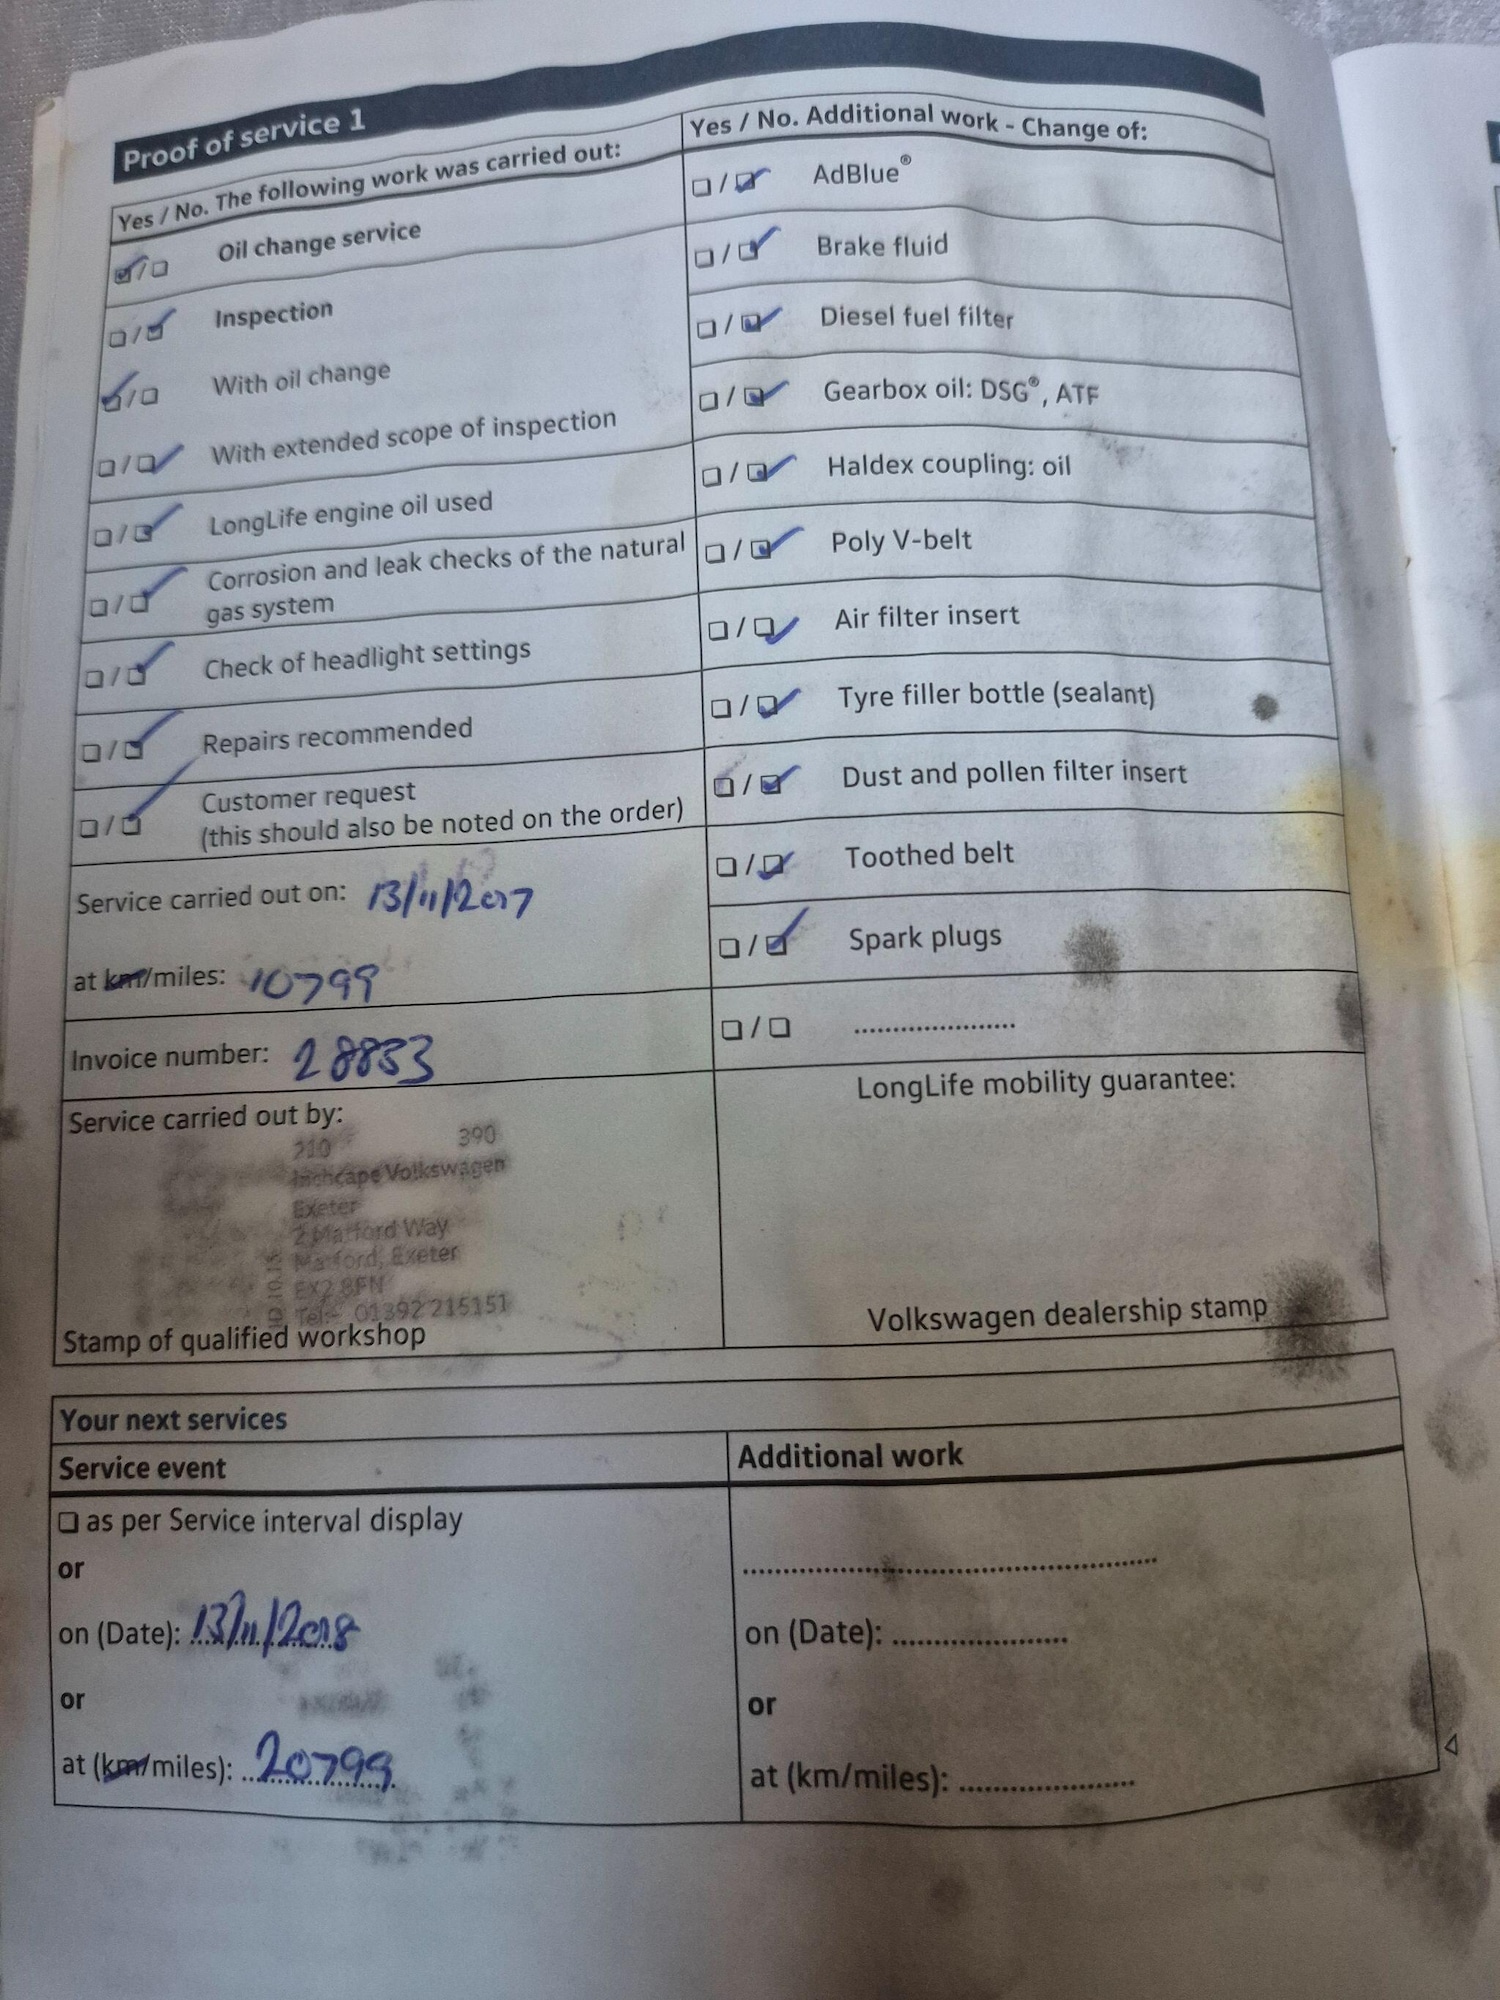 Proof of service 1
Yes / No. The following work was carried out:
Oil change service
Inspection
With oil change
With extended scope of inspection
LongLife engine oil used
Corrosion and leak checks of the natural
gas system
Check of headlight settings
Repairs recommended
Customer request
(this should also be noted on the order)
Service carried out on: 13/11/2017
at km/miles: 10799
Invoice number: 28853
Service carried out by:
210 390
Inchcape Volkswagen
Exeter
2 Matford Way
Matford, Exeter
EX2 8FN
Tel:- 01392 215151
Stamp of qualified workshop
Yes / No. Additional work - Change of:
AdBlue®
Brake fluid
Diesel fuel filter
Gearbox oil: DSG®, ATF
Haldex coupling: oil
Poly V-belt
Air filter insert
Tyre filler bottle (sealant)
Dust and pollen filter insert
Toothed belt
Spark plugs
LongLife mobility guarantee:
Volkswagen dealership stamp
Your next services
Service event
as per Service interval display
or
on (Date): 13/11/2018
or
at (km/miles): 20799
Additional work
on (Date):
or
at (km/miles):